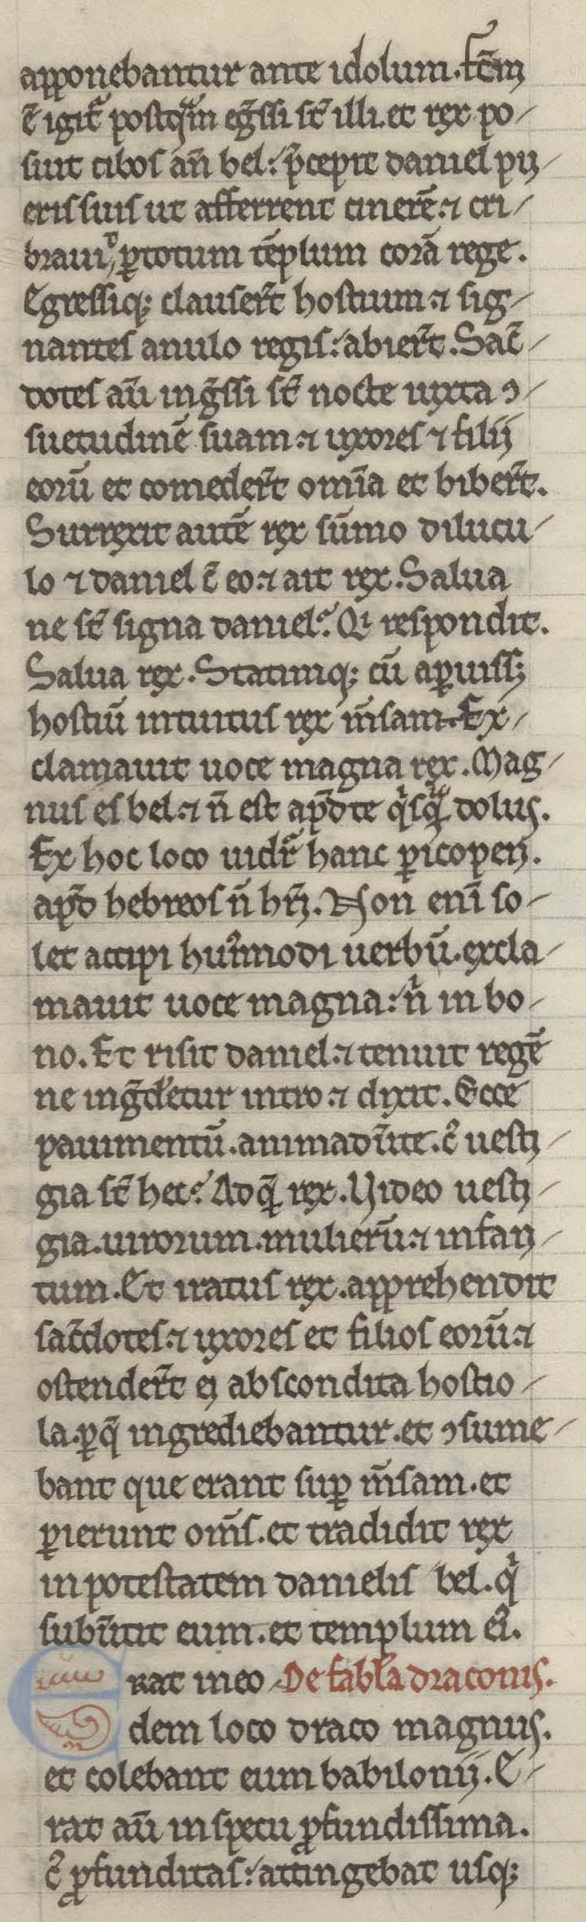 apponebantur ante idolum. fc̄m
ē igit̄ postq̄m eg̃ssi st̄ illi. et rex po-
suit cibos an̄ bel: p̄cepit daniel pu-
eris suis ut afferrent cinerē. ⁊ cri-
brauit ꝑ totum tēplum corā rege.
Egressiq; clauserт̄ hostium ⁊ sig-
nantes anulo regis: abiert̄. Sac̄-
dotes aū ing̃ssi st̄ nocte iuxta ꝯ-
suetudinē suam ⁊ uxores ⁊ filij
eorū et comedert̄ omīa et bibert̄.
Surrexit autē rex sūmo dilucu-
lo ⁊ daniel c̄ eo. ⁊ ait rex. Salua
ne st̄ signa daniel? Qi respondit.
Salua rex. Statimq; cū aꝑuiss;
hostiū intuitus rex m̄sam. Ex-
clamauit uoce magna rex. Mag-
nus es bel. ⁊ n̄ est apd̄ te q̇sq̄ dolus.
Ex hoc loco uidr̄ hanc ꝑicopen.
apd̄ hebreos n̄ hr̄i. Non enī so-
let accipi hui9modi uerbū. excla-
mauit uoce magna: n̄ in bo-
no. Et risit daniel. ⁊ tenuit regē
ne ing̃det̄ur intro. ⁊ dixit. Ecce
pauimentū. animadūte. c9 uesti-
gia st̄ hec? Ad q̄ rex. Video uesti-
gia. uirorum. mulierū. ⁊ infan-
tum. Et iratus rex. apprehendit
sac̄dotes. ⁊ uxores et filios eorū. ⁊
ostendert̄ ei abscondita hostio-
la. ꝑ q̄ ingrediebantur. et ꝯsume-
bant que erant suꝑ m̄sam. et
ꝑierunt om̄s. et tradidit rex
in potestatem danielis bel. q̇
subūtit eum. et templum ei9.
Erat in eo- De fabla draconis.
dem loco draco magnus.
et colebant eum babilonij. E-
rat aū in specu ꝓfundissima.
c9 ꝓfunditas: attingebat usq;